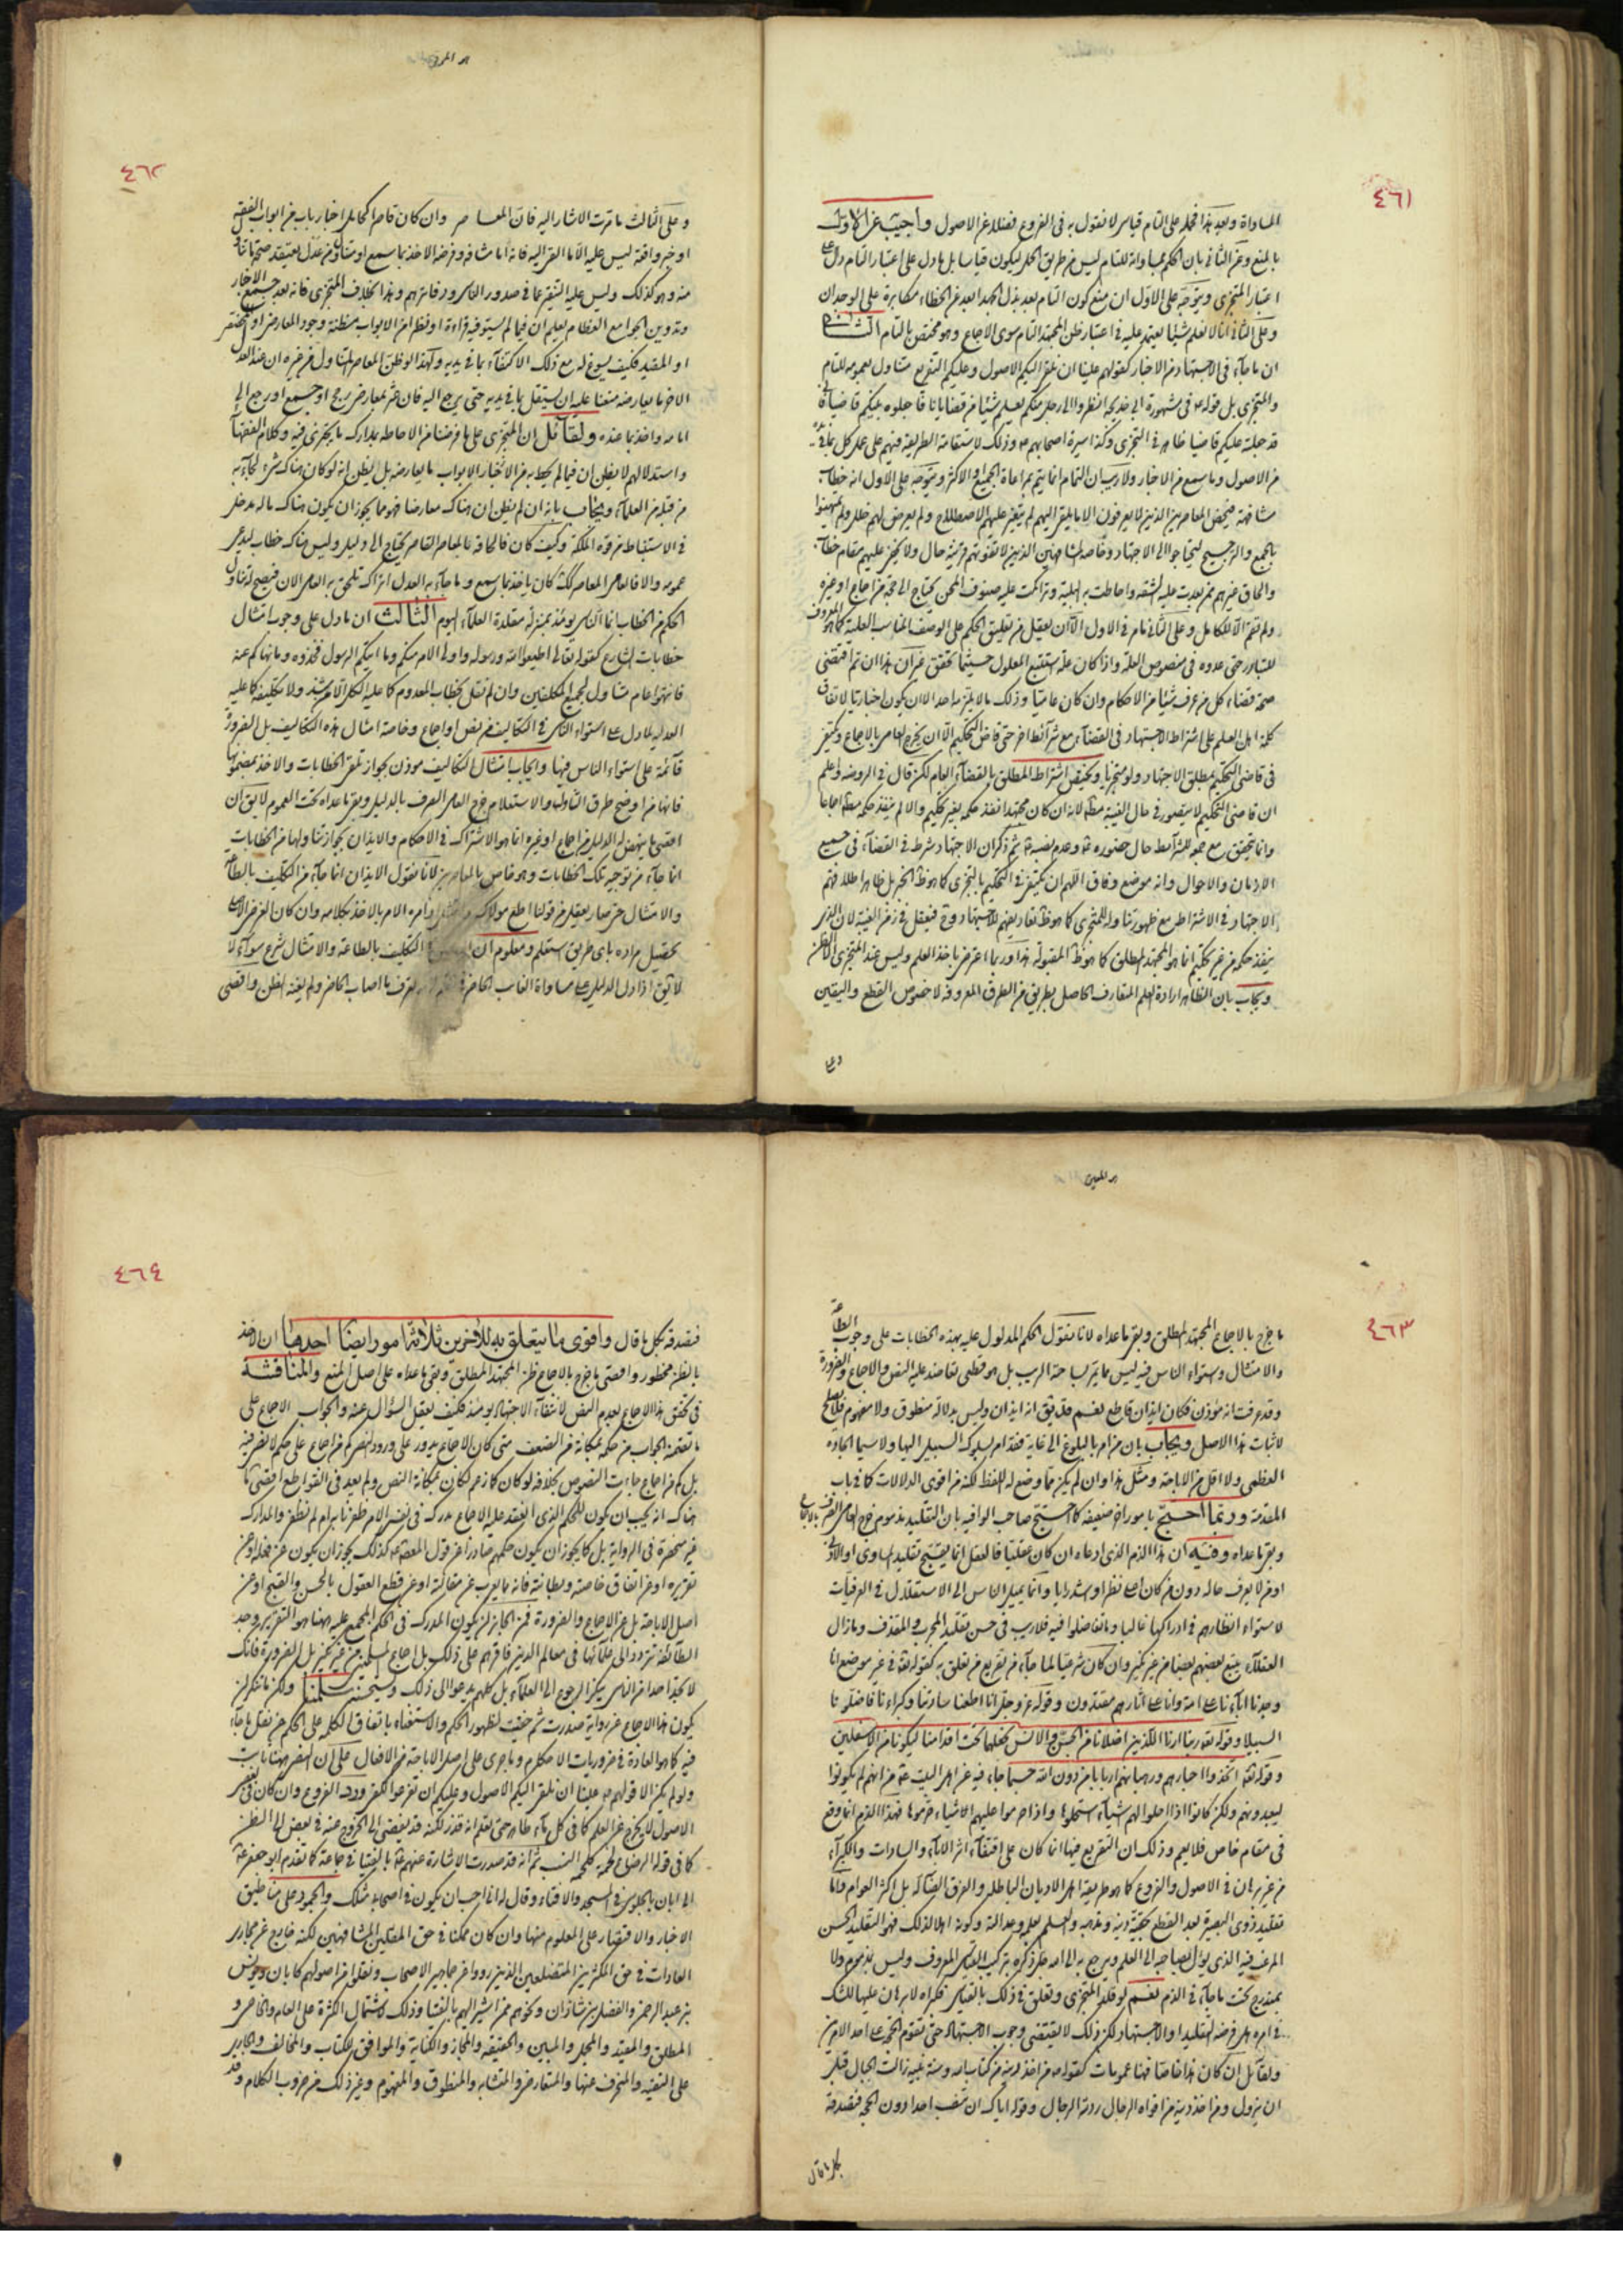 ٤٦١
المساواة وبعد هذا فحمله على التام قياس لا نقول به في الفروع فضلا عن الاصول واجيب عن الاول
بالمنع وعن الثاني بان الحكم بمساواته للتام ليس من طريق الحمل ليكون قياسا بل ما دل على اعتبار التام دل على
اعتبار المتجزي ويتوجه على الاول ان منع كون التام بعد بذل الجهد ابعد عن الخطاء مكابرة على الوجدان
وعلى الثاني انا لا نعلم شيئا يعتمد عليه في اعتبار ظن المجتهد التام سوى الاجماع وهو مختص بالتام الثاني
ان ما جاء في الاجتهاد من الاخبار كقولهم علينا ان نلقي اليكم الاصول وعليكم التفريع متناول بعمومه للتام
والمتجزي بل قوله في مشهورة ابي خديجة انظروا الى رجل منكم يعلم شيئا من قضايانا فاجعلوه بينكم قاضيا فاني
قد جعلته عليكم قاضيا ظاهر في التجزي وكذا سيرة اصحابهم وذلك لاستقامة الطريقة فيهم على عمل كل بما في يده
من الاصول وما سمع من الاخبار ولا ريب ان التمام انما يتم بمراعاة الجميع او الاكثر ويتوجه على الاول انه خطاب
مشافهة فيخص المعاصرين الذين لا يعرفون الا ما يلقى اليهم لم يتغير عليهم الاصطلاح ولم يعرض لهم خلل ولم يمتهنوا
بالجمع والترجيح ليحتاجوا الى الاجتهاد وقاصد المشافهين الذين لا تفوتهم قرينة حال ولا يخفى عليهم مقام خطاب
والحاق غيرهم ممن بعدت عليه الشقة واحاطت به البلية وتراكمت عليه صنوف المحن يحتاج الى حجة من اجماع او غيره
ولم تقم الا للكامل وعلى الثاني ما مر في الاول الا ان يعقل من تعليق الحكم على الوصف المناسب العلية كما هو المعروف
للتبادر حتى عدوه في منصوص العلة واذا كان علة استتبع المعلول حيثما تحقق غير ان هذا ان تم اقتضى
صحة قضاء كل من عرف شيئا من الاحكام وان كان عاميا وذلك ما لا يلتزمه احد الا ان يكون اخباريا لاتفاق
كلمة اهل العلم على اشتراط الاجتهاد في القضاء مع شرائط اخر حتى قاضي التحكيم الا ان يخرج العامي بالاجماع ويكتفى
في قاضي التحكيم بمطلق الاجتهاد ولو متجزيا ويختص اشتراط المطلق بالقضاء العام لكن قال في الروضة واعلم
ان قاضي التحكيم لا يتصور في حال الغيبة مطلقا لانه ان كان مجتهدا نفذ حكمه بغير تحكيم والا لم ينفذ حكمه مطلقا اجماعا
وانما يتحقق مع جمعه للشرائط حال حضوره وعدم نصبه ثم ذكر ان الاجتهاد شرط في القضاء في جميع
الازمان والاحوال وانه موضع وفاق اللهم ان يكتفى في التحكيم بالتجزي كما هو ظاهر الخبر بل ظاهر اطلاقهم
الاجتهاد في الاشتراط مع ظهور تناوله للتجزي كما هو ظاهر تعاريفهم للاجتهاد وح فيعقل في زمن الغيبة لان الذي
ينفذ حكمه من غير تحكيم انما هو المجتهد المطلق كما هو ظاهر المقبولة هذا وربما اعترض باخذ العلم وليس عند المتجزي الا الظن
ويجاب بان الظاهر ارادة العلم المتعارف الحاصل بطريق من الطرق المعروفة لا خصوص القطع واليقين
وعلى
٤٦٢
وعلى الثالث ما مرت الاشارة اليه فان المعاصر وان كان قاصرا كحامل اخبار باب من ابواب الفقه
او خبر واقعة ليس عليه الا ما القي اليه فانه اما مشافه وفرضه الاخذ بما سمع او متناول من عدل يعتقد صحة ما تناول
منه وهو كذلك وليس عليه التنقير عما في صدور الناس ودفاترهم وهذا بخلاف المتجزي فانه بعد جمع الاخبار
وتدوين الجوامع العظام يعلم ان فيما لم يستوفه قراءة او نظرا من الابواب مظنة وجود المعارض او المخصص
او المقيد فكيف يسوغ له مع ذلك الاكتفاء بما في يديه ولهذا لو ظن المعاصر المتناول من غيره ان عند العدل
الاخر ما يعارضه منعنا عليه ان يستقل بما في يديه حتى يرجع اليه فان عثر بمعارض رجح او جمع او رجع الى
امامه واخذ بما عنده ولقائل ان المتجزي على ما فرضنا من الاحاطة بمدارك ما يتجزى فيه وكلام الفقهاء
واستدلالهم لا يظن ان فيما لم يحط به من الاخبار الابواب ما يعارضه بل يظن انه لو كان هناك شيء لجاء به
من قبله من العلماء ويجاب بانه ان لم يظن ان هناك معارضا فهو مما يجوز ان يكون هناك ماله مدخل
في الاستنباط من قوة الملكة وكيف كان فالحاقه بالمعاصر القاصر يحتاج الى دليل وليس هناك خطاب يدعى
عمومه والا فالعامي المعاصر كذلك كان ياخذ بما سمع وما جاء به العدل اتراك تلحق به العامي الان فيصح له تناول
الحكم من الخطاب انما الناس يومئذ بمنزلة مقلدة العلماء اليوم الثالث ان ما دل على وجوب امتثال
خطابات الشارع كقوله تعالى اطيعوا الله ورسوله واولي الامر منكم وما اتيكم الرسول فخذوه وما نهاكم عنه
فانتهوا عام متناول لجميع المكلفين وان لم نقل بخطاب المعدوم كما عليه الكل الا من شذ ولا بتكليفه كما عليه
العدلية لما دل على استواء الناس في التكاليف من نص او اجماع وخاصة امثال هذه التكاليف بل الضرورة
قائمة على استواء الناس فيها وايجاب امتثال التكاليف موذن بجواز تلقي الخطابات والاخذ بمضمونها
فانها من اوضح طرق التناول والاستعلام خرج العامي الصرف بالدليل وبقي ما عداه تحت العموم لا يق ان
اقصى ما ينهض له الدليل من اجماع او غيره انما هو الاشتراك في الاحكام والايذان بجواز تناولها من الخطابات
انما جاء من توجيه تلك الخطابات وهو خاص بالمعاصرين لانا نقول الايذان انما جاء من التكليف بالطاعة
والامتثال حتى صار يعقل من قولنا اطع مولاك وامتثل اوامره الامر بالاخذ بكلامه وان كان الغرض الاصلي
تحصيل مراده باي طريق استعلم ومعلوم ان التكليف بالطاعة والامتثال شرع سواء لا
لا يق اذا دل الدليل على مساواة الغائب الحاضر في تصرف بما اصاب الحاضر ولم يغنه الظن واقصى
٤٦٣
ما خرج بالاجماع المجتهد المطلق وبقي ما عداه لانا نقول الحكم المدلول عليه بهذه الخطابات على وجوب الطاعة
والامتثال واستواء الناس فيه ليس مما يتم بساحته الريب بل هو قطعي تعاضد عليه النص والاجماع والضرورة
وقد عرفت انه موذن فكان ايذان قاطع نعم قد يق انه ايذان وليس بدلالة منطوق ولا مفهوم فلا يصلح
لاثبات هذا الاصل ويجاب بان من امر بالبلوغ الى غاية فقد امر بسلوك السبيل اليها ولا سيما الجادة
العظمى ولا اقل من الاباحة ومثل هذا وان لم يكن مما وضع له اللفظ لكنه من اقوى الدلالات كما في باب
المقدمة وربما احتج بامور اخر ضعيفة كما احتج صاحب الوافية بان التقليد مذموم خرج العامي الصرف بالاجماع
وبقي ما عداه وفيه ان هذا الذم الذي ادعاه ان كان عقليا فالعقل انما يقبح تقليد المساوي او الادنى
او من لا يعرف حاله دون من كان اصح نظرا واسد رايا وانما يميل الناس الى الاستقلال في العرفيات
لاستواء انظارهم في ادراكها غالبا وما تفاضلوا فيه فلا ريب في حسن تقليد المجرب والمقذف وما زال
العقلاء يتبع بعضهم بعضا من غير نكير وان كان شرعيا لما جاء من تقريع من تعلق به كقوله تعالى في غير موضع انا
وجدنا اباءنا على امة وانا على اثارهم مقتدون وقوله عز وجل انا اطعنا سادتنا وكبراءنا فاضلونا
السبيلا وقوله تعالى ربنا ارنا اللذين اضلانا من الجن والانس نجعلهما تحت اقدامنا ليكونا من الاسفلين
وقوله تعالى اتخذوا احبارهم ورهبانهم اربابا من دون الله حسبما جاء فيه عن اهل البيت من انهم لم يكونوا
ليعبدونهم ولكن كانوا اذا احلوا لهم شيئا استحلوه واذا حرموا عليهم الاشياء حرموها فهذا الذم انما وقع
في مقام خاص فلا يعم وذلك ان التقريع فيها انما كان على اقتفاء اثر الاباء والسادات والكبراء
من غير برهان في الاصول والفروع كما هو طريقة اهل الاديان الباطلة والفرق الضالة بل اكثر العوام واما
تقليد ذوي البصيرة بعد القطع بحقية دينه ومذهبه والعلم بعلمه وعدالته وكونه اهلا لذلك فهو التقليد الحسن
المرغب فيه الذي يؤل بصاحبه الى العلم ويرجع به الى امام بل ذكره بتركيب القياس المعروف وليس بمذموم ولا
بمندرج تحت ما جاء في الذم نعم لو قلد المتجزي وتعلق في ذلك بالقياس فكراه لا برهان عليها للشك
في امره هل فرضه التقليد او الاجتهاد لكن ذلك لا يقتضي وجوب الاجتهاد حتى تقوم الحجة على احد الامرين
ولقائل ان كان هذا خاصا فهنا عمومات كقوله من اخذ دينه من كتاب الله وسنة نبيه زالت الجبال قبل
ان يزول ومن اخذ دينه من افواه الرجال ردته الرجال وقوله اياك ان تنصب احدا دون الحجة فتصدقه
بكل ما قال
٤٦٤
فتصدقه بكل ما قال واقوى ما يتعلق به للاخرين ثلاثة امور ايضا احدها ان الاخذ
بالظن محظور واقصى ما خرج بالاجماع ظن المجتهد المطلق وبقي ما عداه على اصل المنع والمناقشة
في تحقق هذا الاجماع بعدم النص لانتفاء الاجتهاد يومئذ فكيف يعقل السؤال عنه والجواب الاجماع على
ما تضمنه الجواب من حكمه بمكانة من الضعف متى كان الاجماع يدور على ورود النص كم من اجماع على حكم لا نص فيه
بل كم من اجماع جاءت النصوص بخلافه لو كان كما زعم لكان بمكانة النص ولم يعد في القواطع اقصى ما
هناك انه يجب ان يكون للحكم الذي انعقد عليه الاجماع مدرك في نفس الامر ظفرنا به ام لم نظفر والمدارك
غير منحصرة في الرواية بل كما يجوز ان يكون حكمهم صادرا عن قول المعصوم كذلك يجوز ان يكون عن فعله او عن
تقريره او عن اتفاق خاصته وبطانته فانه مما يعرب عن مقالته او عن قطع العقول بالحسن والقبح او عن
اصل الاباحة بل عن الاجماع والضرورة فمن الجائز ان يكون المدرك في الحكم المجمع عليه ههنا هو التقرير وجد
الطائفة تردد الى علمائها في معالم الدين فاقرهم على ذلك بل اجماع المسلمين من غير نكير بل الضرورة فانك
لا تجد احدا من الناس ينكر الرجوع الى العلماء بل كلهم يدعو الى ذلك ويستحسنه سلمنا ولكن ما ننكر ان
يكون هذا الاجماع عن رواية صدرت ثم خفيت لظهور الحكم والاستغناء باتفاق الكلمة على الحكم عن نقل ما جاء
فيه كما هو العادة في ضروريات الاحكام وما جرى على اصل الاباحة من الافعال على ان النص ههنا ثابت
ولو لم يكن الا قولهم علينا ان نلقي اليكم الاصول وعليكم ان تفرعوا لكفى ورد الفروع وان كان في بعض
الاصول لا يخرج عن العلم كما في كل ماء طاهر حتى تعلم انه قذر لكنه قد يفضي الى الخروج عنه في بعض الى الظن
كما في قوله الرضاع لحمة كلحمة النسب ثم انه قد صدرت الاشارة عنهم بالفتيا في جماعة كما تقدم ابو جعفر
الى ابان بالجلوس في المسجد والافتاء وقال له اني احب ان يكون في اصحابه مثلك والجمود على مناطيق
الاخبار والاقتصار على المعلوم منها وان كان ممكنا في حق المقلين المشافهين لكنه خارج عن مجاري
العادات في حق المكثرين المتضلعين الذين رووا عن جماهير الاصحاب ونقلوا من اصولهم كابان ويونس
بن عبد الرحمن والفضل بن شاذان ونحوهم ممن اشير اليهم بالفتيا وذلك لاشتمال الكثرة على العام والخاص و
المطلق والمقيد والمجمل والمبين والحقيقة والمجاز والكناية والموافق للكتاب والمخالف والجاري
على التقية والمنحرف عنها والمتعارض والمتشابه والمنطوق والمفهوم وغير ذلك من ضروب الكلام وقد